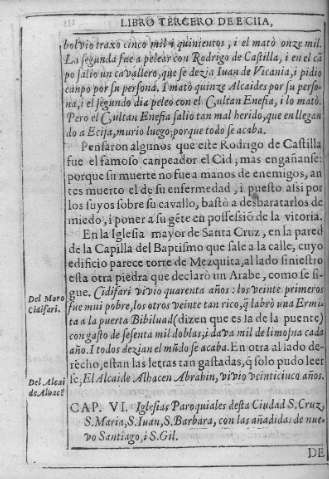 LIBRO TERCERO DE ECIIA,
bolvio traxo cinco mil i quinientos, i el matò onze mil.
La segunda fue a pelear con Rodrigo de Castilla, i en el cã
po salio un cavallero, que se dezia Iuan de Vicania, i pidio
campo por su persona. I matò quinze Alcaides por su perso
na, i el segundo dia peleo con el Cultan Enefia, i lo matò.
Pero el Cultan Enefia salio tan mal herido, que en llegan
do a Ecija, murio luego, porque todo se acaba.
Pensaron algunos que este Rodrigo de Castilla
fue el famoso canpeador el Cid, mas engañanse:
porque su muerte no fue a manos de enemigos, an
tes muerto el de su enfermedad, i puesto assi por
los suyos sobre su cavallo, bastò a desbaratarlos de
miedo, i poner a su gẽte en possessiõ de la vitoria.
En la Iglesia mayor de Santa Cruz, en la pared
de la Capilla del Baptismo que sale a la calle, cuyo
edificio parece torre de Mezquita, al lado siniestro
esta otra piedra que declarò un Arabe, como se si-
gue. Cidifari vivio quarenta años: los veinte primeros
Del Moro
Cidifari.
fue mui pobre, los otros veinte tan rico, q̃ labrò una Ermi
ta a la puerta Bibiluad (dizen que es la de la puente)
con gasto de sesenta mil doblas, i dava mil de limosna cada
año. I todos dezian el mũdo se acaba. En otra al lado de-
recho, estan las letras tan gastadas, q̃ solo pudo leer
se, El Alcaide Albacen Abrabin, vivio veinticinco años.
Del Alcai
de Albacẽ
CAP. VI. Iglesias Paroquiales desta Ciudad S. Cruz,
S. Maria, S. Iuan, S. Barbara, con las añadidas de nue-
vo Santiago, i S. Gil.
DE